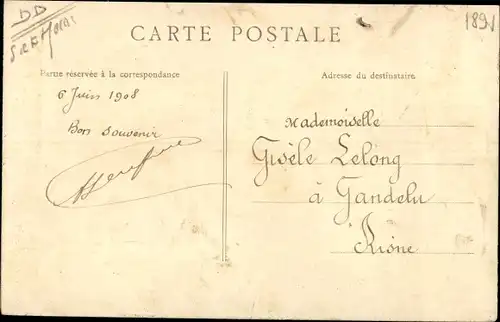 DD
1891
CARTE POSTALE
Partie réservée à la correspondance
Adresse du destinataire.
6 Juin 1908
Bon souvenir
Mademoiselle
Gisèle Lelong
à Gandelu
Aisne